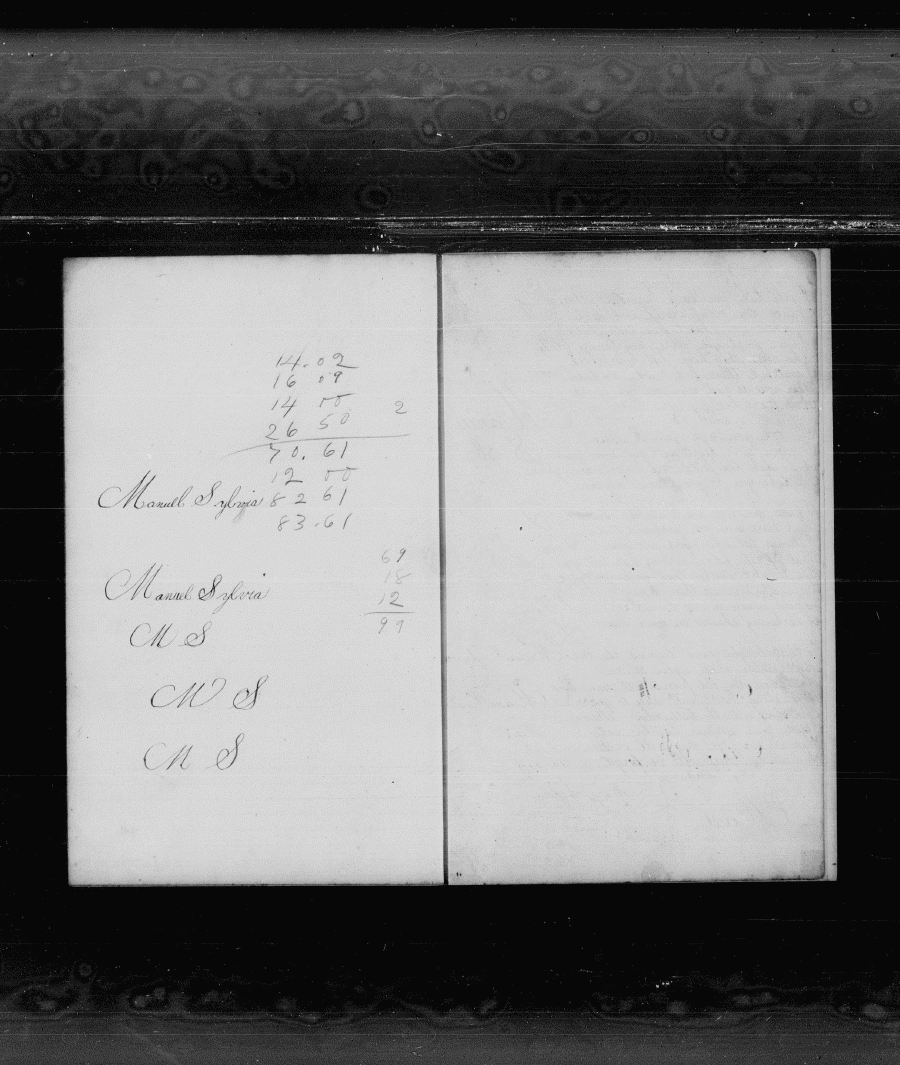 14.02
16 09
14 00
26 50 2
70.61
12 00
Manuel Sylvia 82 61
83.61
69
18
Manuel Sylvia 12
99
M S
M S
M S